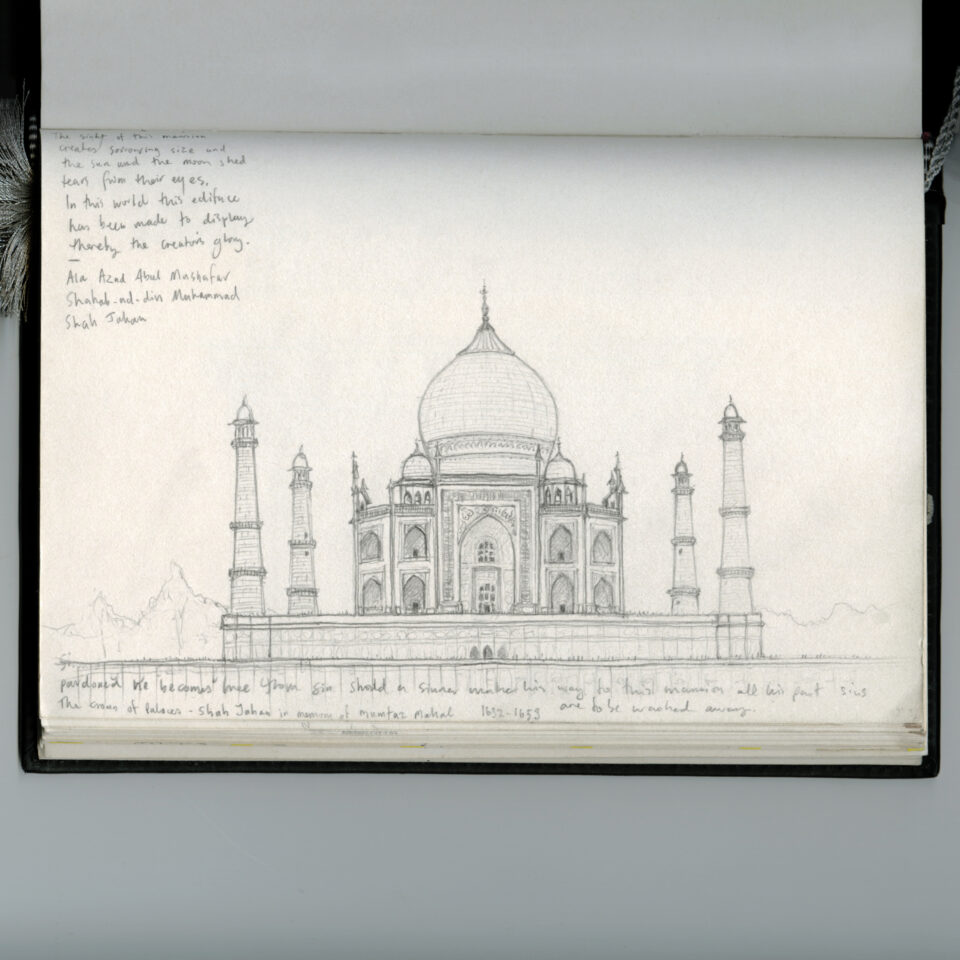 The sight of this mansion
creates sorrowing size and
the sun and the moon shed
tears from their eyes.
In this world this edifice
has been made to display
thereby the creators glory.
Ala Azad Abul Mushafar
Shahab-ud-din Muhammad
Shah Jahan
pardoned he becomes free from sin should a sinner make his way to this mansion all his past sins
are to be washed away.
The crown of Palaces - Shah Jahan in memory of Mumtaz Mahal 1632-1653